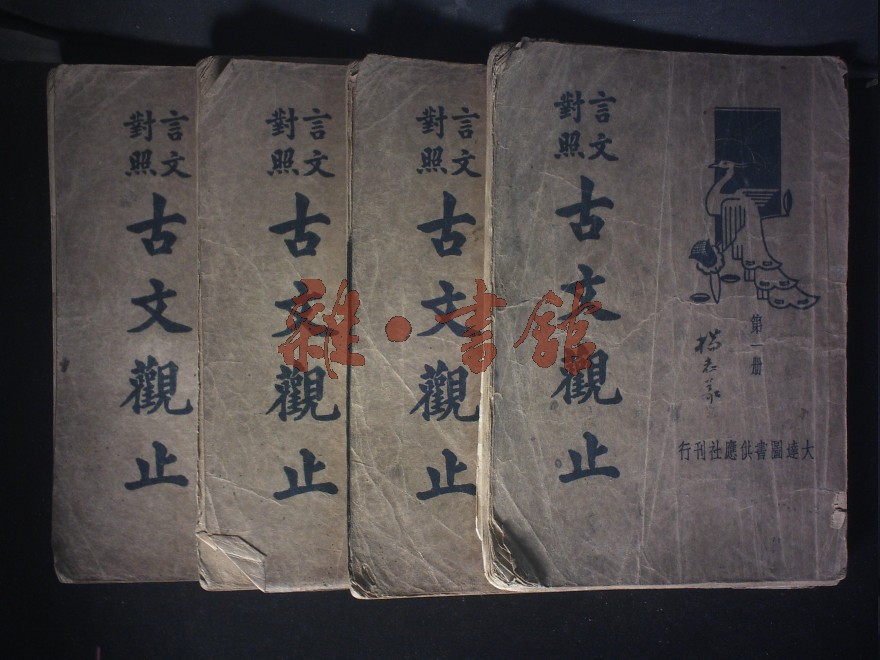 言文
對照
古文觀止
言文
對照
古文觀止
言文
對照
古文觀止
言文
對照
古文觀止
第一册
大達圖書供應社刊行
雜·書館